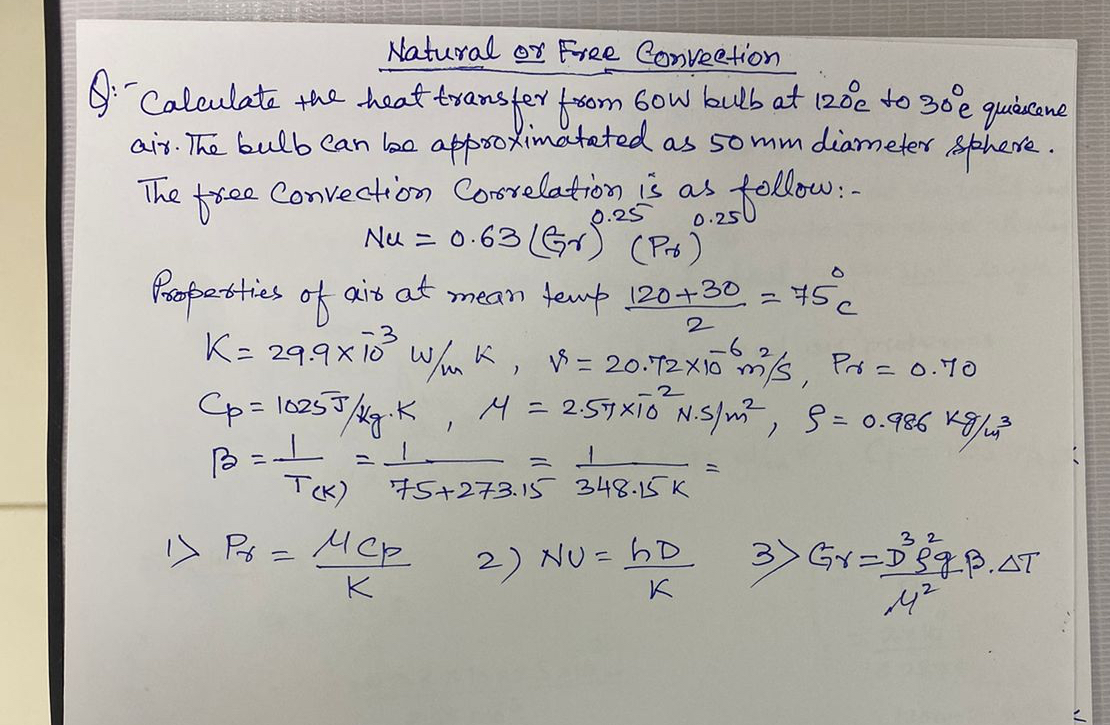 Natural or Free Convection
Q:- Calculate the heat transfer from 60W bulb at 120°c to 30°c quiescene
air. The bulb can be approximatated as 50mm diameter sphere.
The free Convection Correlation is as follow:-
Nu = 0.63 (Gr)^0.25 (Pr)^0.25
Properties of air at mean temp (120+30)/2 = 75°c
K = 29.9×10^-3 W/m K, ν = 20.72×10^-6 m²/s, Pr = 0.70
Cp = 1025 J/kg.K, μ = 2.57×10^-2 N.S/m², ρ = 0.986 kg/m³
β = 1/T(K) = 1/(75+273.15) = 1/(348.15 K) =
1> Pr = μCp/K 2) NU = hD/K 3> Gr = D³ρ²gβ.ΔT/μ²